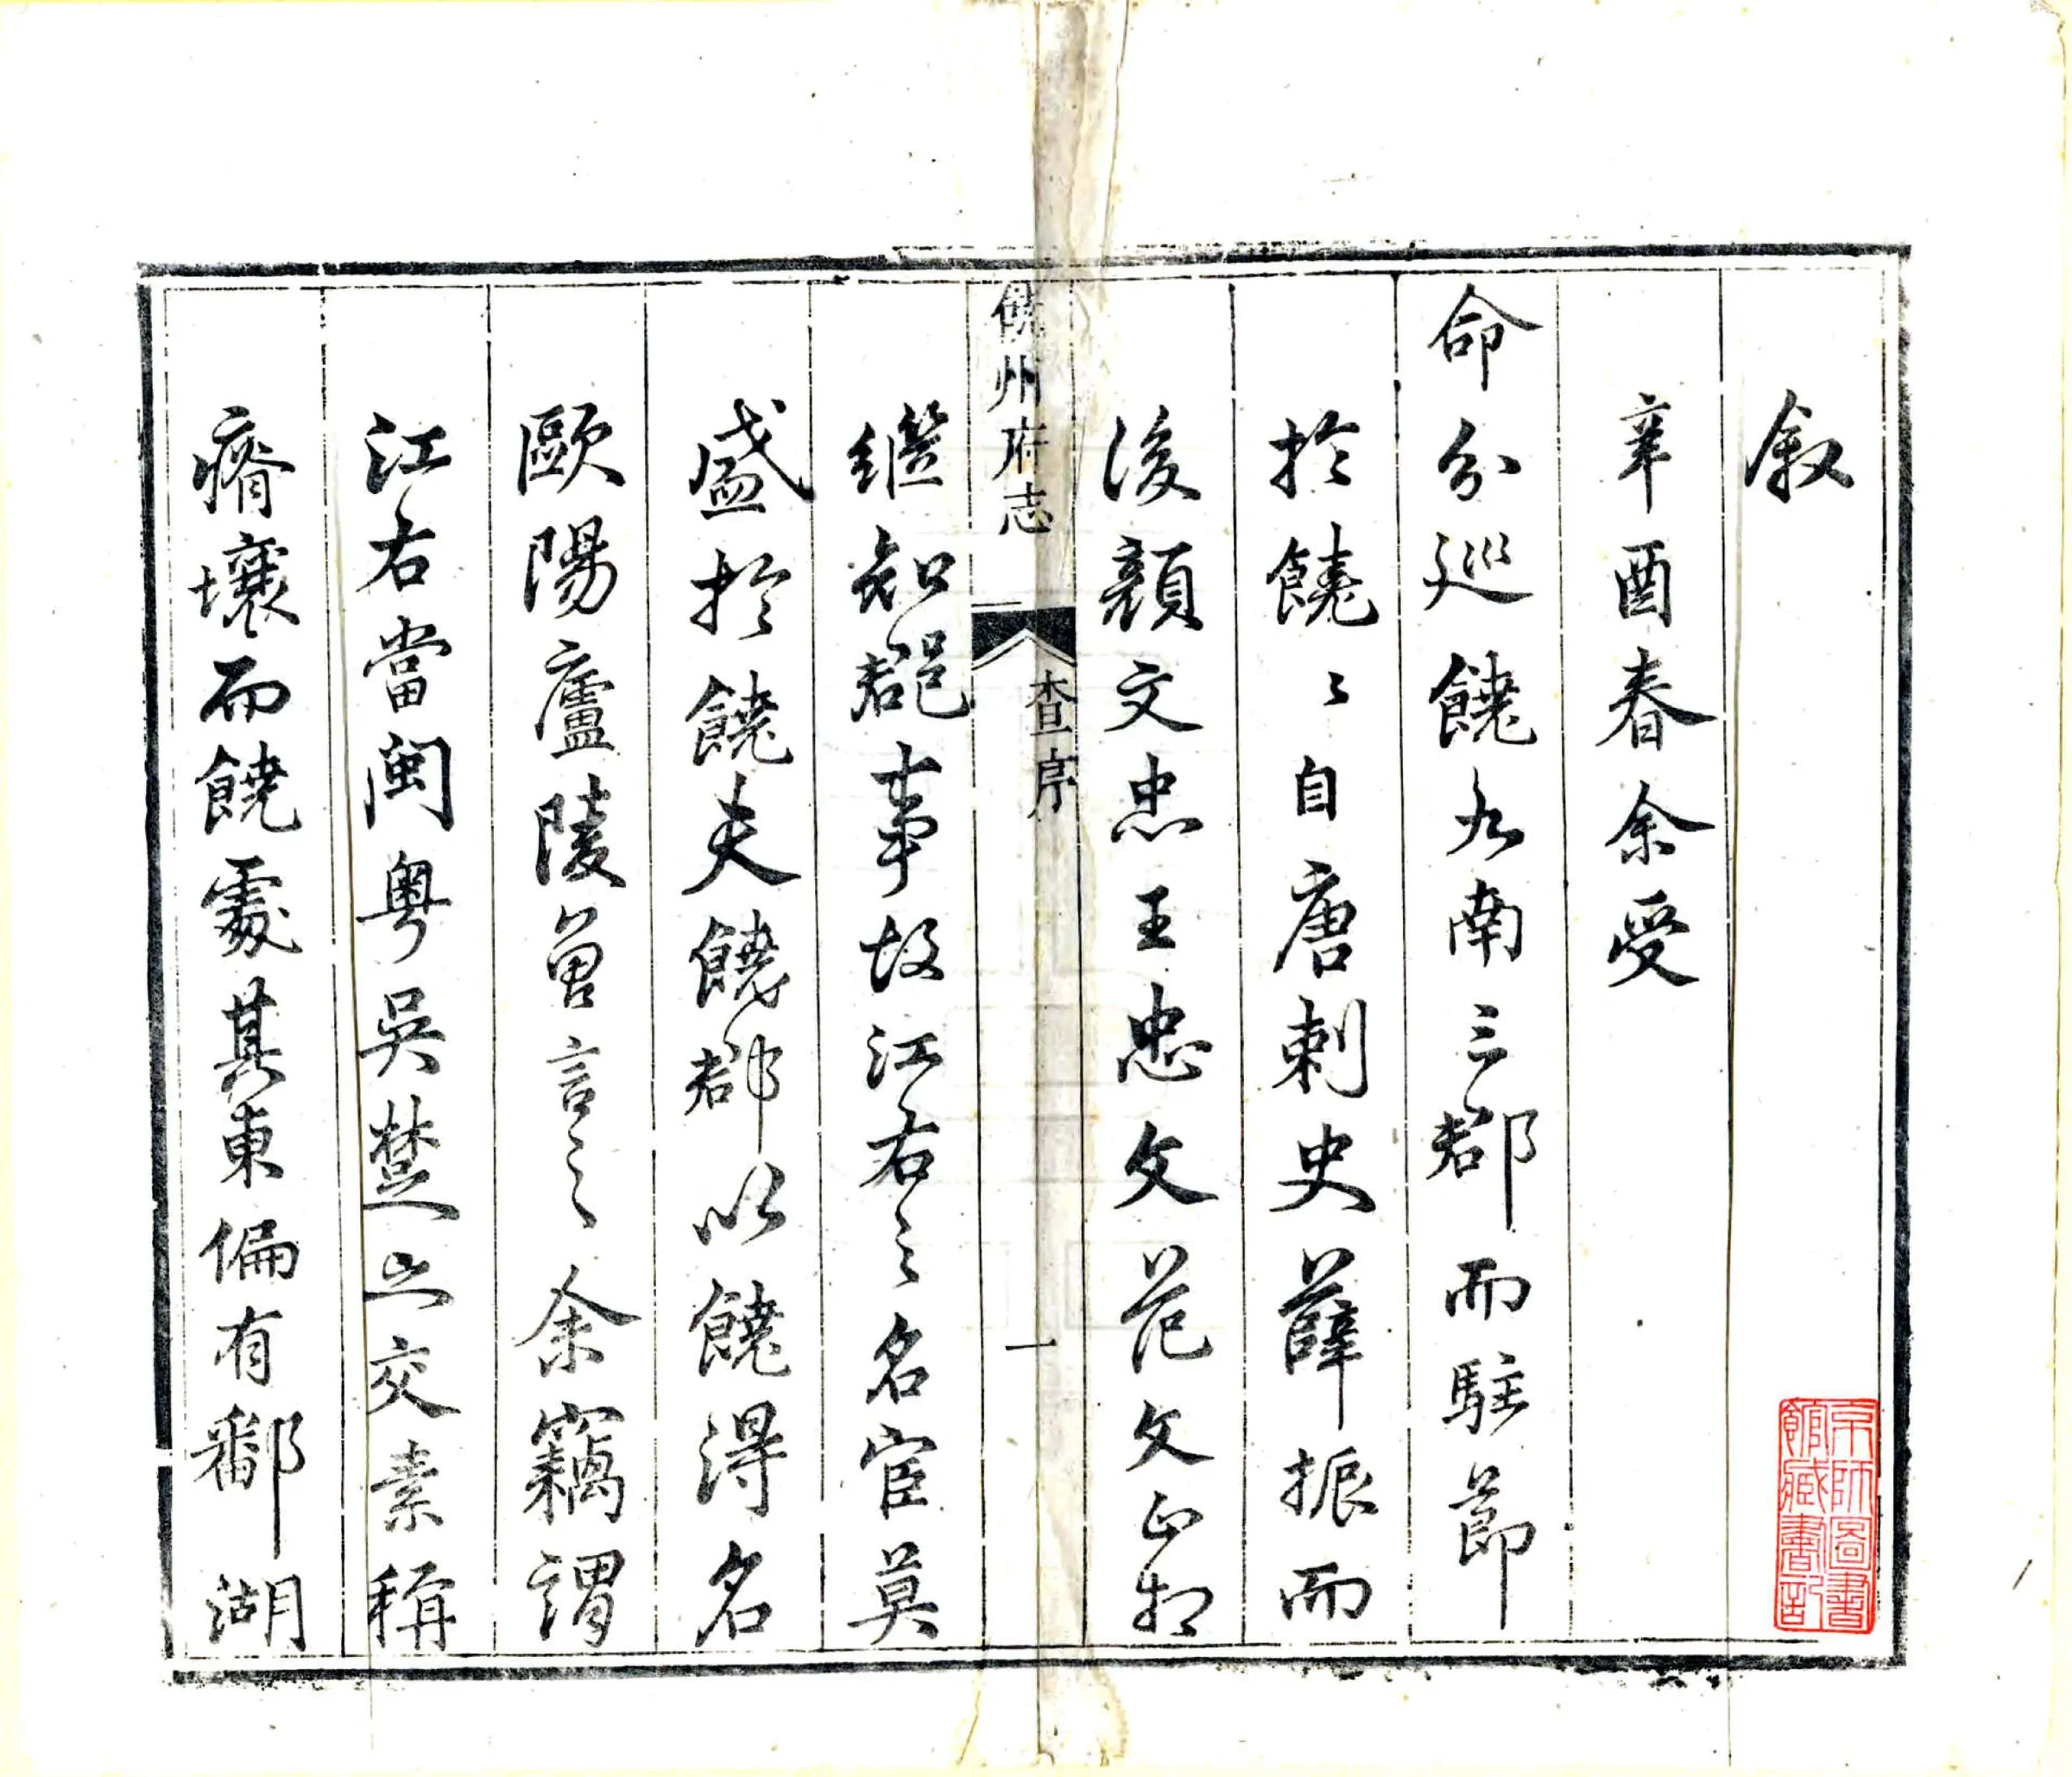 叙
辛酉春余受
命分巡饒九南三郡而駐節
於饒〻自唐刺史薛振而
後顏文忠王忠文范文正相
繼知郡事故江右之名宦莫
饒州府志
查序
一
盛於饒夫饒郡以饒得名
歐陽廬陵曽言之余竊謂
江右當閩粵吳楚之交素稱
瘠壤而饒處其東偏有鄱湖
京師圖書
館藏書記